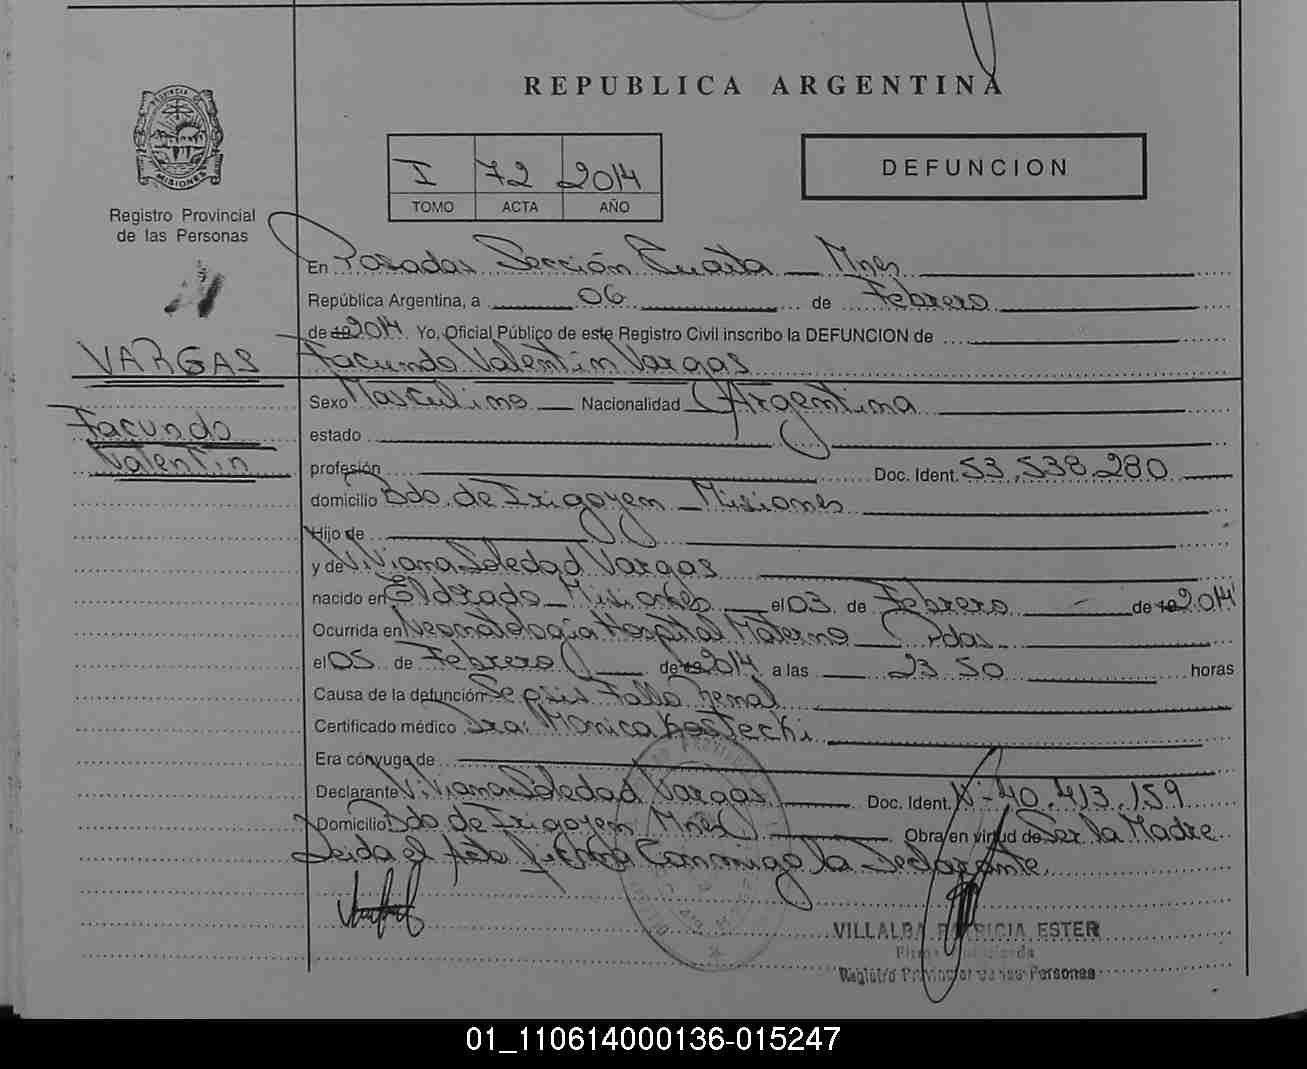 REPUBLICA ARGENTINA
I 72 2014
TOMO ACTA AÑO
DEFUNCION
PROVINCIA DE
MISIONES
Registro Provincial
de las Personas
VARGAS
Facundo
Valentin
En Posadas Sección Cuarta Mnes
República Argentina, a 06 de Febrero
de 2014 Yo, Oficial Público de este Registro Civil inscribo la DEFUNCION de
Facundo Valentin Vargas
Sexo Masculino Nacionalidad Argentina
estado
profesión Doc. Ident. 53.538.280
domicilio Bdo. de Irigoyen - Misiones
Hijo de
y de Viviana Soledad Vargas
nacido en Eldorado - Misiones el 03 de Febrero de 2014
Ocurrida en Neonatología Hospital Materno Pdas
el 05 de Febrero de 2014 a las 23 50 horas
Causa de la defunción Sepsis Falla Renal
Certificado médico Dra: Monica Kostecki
Era cónyuge de
Declarante Viviana Soledad Vargas Doc. Ident. Nº 40.413.159
Domicilio Bdo de Irigoyen Mnes Obra en virtud de Ser la Madre
Leida el Acta firma Conmigo la Declarante
VILLALBA PATRICIA ESTER
Registro Provincial de las Personas
01_110614000136-015247